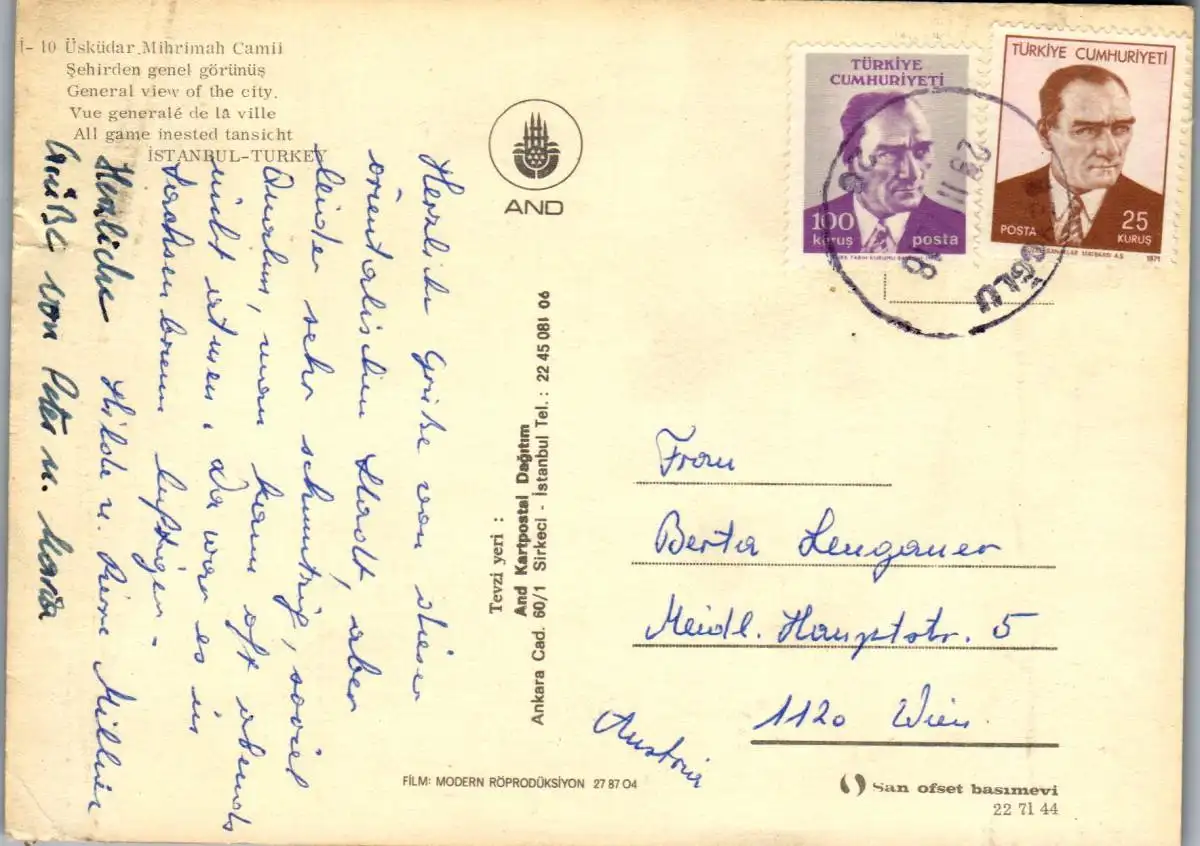 İ- 10 Üsküdar Mihrimah Camii
Şehirden genel görünüş
General view of the city.
Vue generalé de la ville
All game inested tansicht
İSTANBUL-TURKEY
AND
TÜRKİYE
CUMHURİYETİ
100
kuruş posta
TÜRKİYE CUMHURİYETİ
POSTA 25
KURUŞ
1971
23 11
OĞLU
Herzliche Grüße von dieser
orientalischen Stadt, aber
leider sehr schmutzig, soviel
Qualm, man kann oft abends
nicht atmen. Da war es in
luftiger -
Herzliche Hilde u. Pierre
Grüße von Peter u. Maria
Tevzi yeri :
And Kartpostal Dağıtım
Ankara Cad. 60/1 Sirkeci - İstanbul Tel.: 22 45 08 ı 06
Frau
Berta Lengauer
Meidl. Hauptstr. 5
1120 Wien
Austria
FİLM: MODERN RÖPRODÜKSİYON 27 87 04
San ofset basımevi
22 71 44